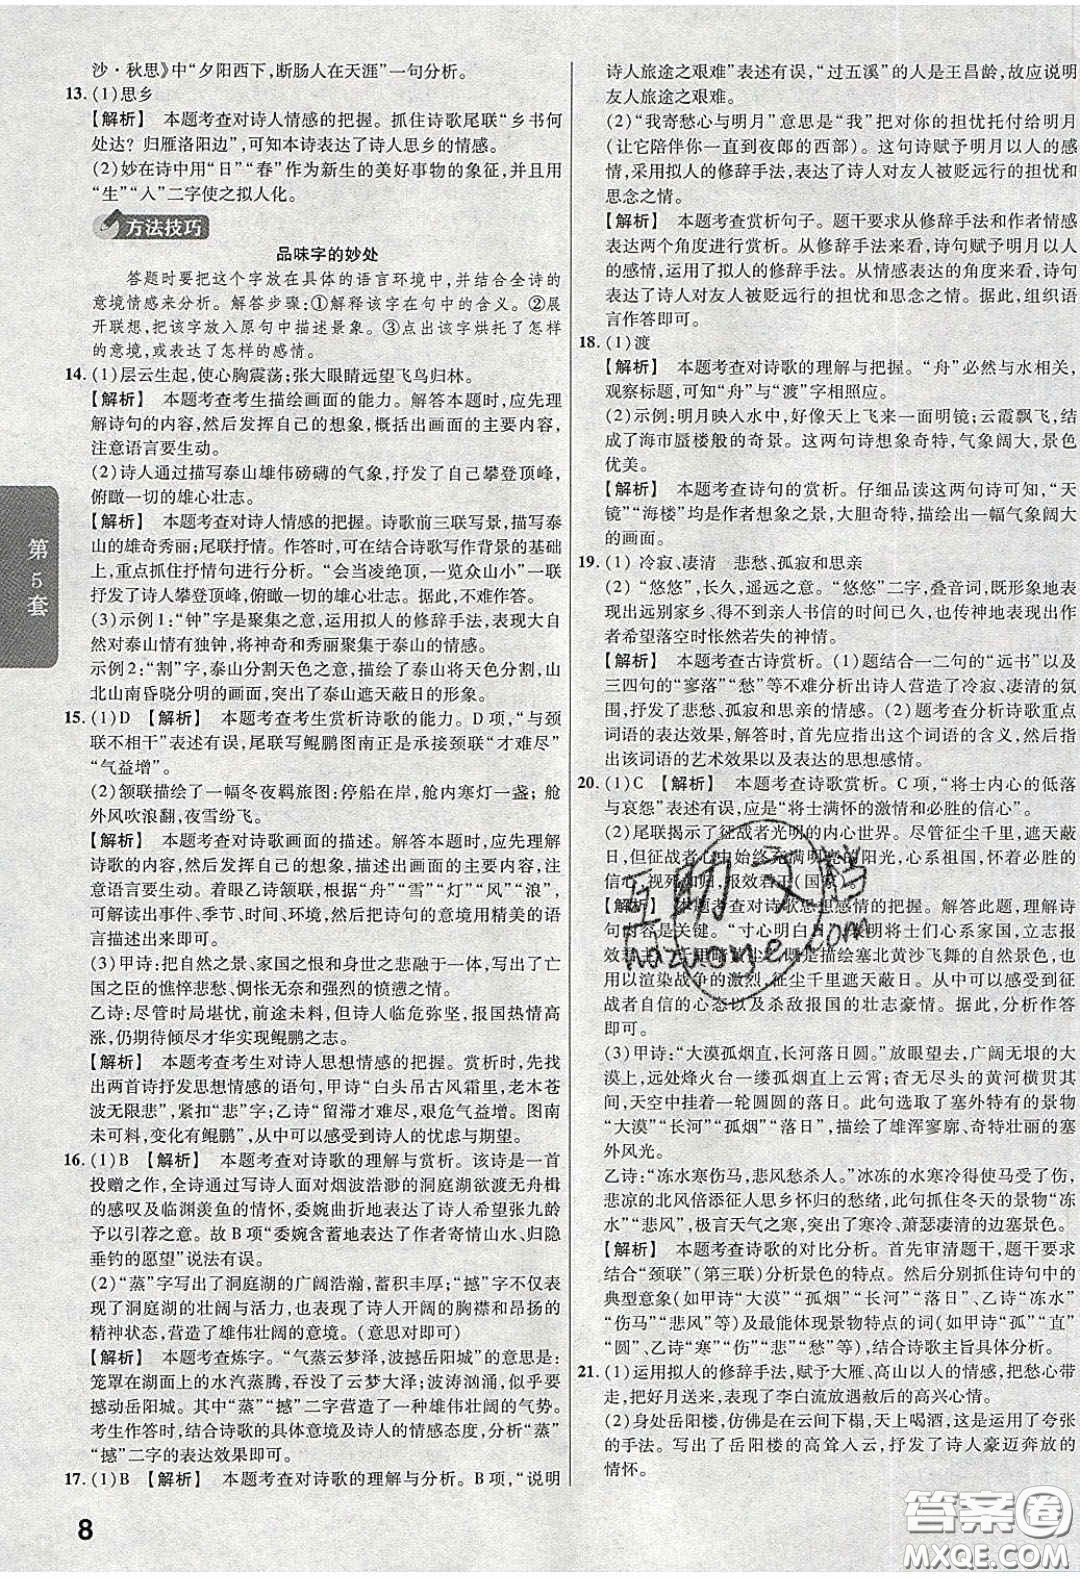 沙·秋思》中“夕阳西下，断肠人在天涯”一句分析。
13. (1)思乡
【解析】 本题考查对诗人情感的把握。抓住诗歌尾联“乡书何
处达？归雁洛阳边”，可知本诗表达了诗人思乡的情感。
(2)妙在诗中用“日”“春”作为新生的美好事物的象征，并且用
“生”“入”二字使之拟人化。
方法技巧
品味字的妙处
答题时要把这个字放在具体的语言环境中，并结合全诗的
意境情感来分析。解答步骤：①解释该字在句中的含义。②展
开联想，把该字放入原句中描述景象。③点出该字烘托了怎样
的意境，或表达了怎样的感情。
14. (1)层云生起，使心胸震荡；张大眼睛远望飞鸟归林。
【解析】 本题考查考生描绘画面的能力。解答本题时，应先理
解诗句的内容，然后发挥自己的想象，概括出画面的主要内容，
注意语言要生动。
(2)诗人通过描写泰山雄伟磅礴的气象，抒发了自己攀登顶峰，
俯瞰一切的雄心壮志。
【解析】 本题考查对诗人情感的把握。诗歌前三联写景，写泰
山的雄奇秀丽；尾联抒情。作答时，可在结合诗歌写作背景的基础
上，重点抓住抒情句进行分析。“会当凌绝顶，一览众山小”一联
抒发了诗人攀登泰山顶峰，俯瞰一切的壮志。据此，不难作答。
(3)示例1：“钟”字是聚集之意，运用拟人的修辞手法，表现大自
然对泰山情有独钟，将神奇和秀丽聚集于泰山的情感。
示例2：“割”字，泰山分割天色之意，描绘了泰山将天色分割，山
北山南昏晓分明的画面，突出了泰山遮天蔽日的形象。
15. (1)D 【解析】 本题考查考生赏析诗歌的能力。D项，“与颈
联不相干”表述有误，尾联写鲲鹏图南正是承接颈联“才难尽”
“气益增”。
(2)颔联描绘了一幅冬夜羁旅图：停船在岸，舱内寒灯一盏；舱
外风吹浪翻，夜雪纷飞。
【解析】 本题考查对诗歌画面的描述。解答本题时，应先理解
诗歌的内容，然后发挥自己的想象，描述出画面的主要内容，注
意语言要生动。着眼乙诗颔联，根据“舟”“雪”“灯”“风”“浪”，
可解读出事件、季节、时间、环境，然后将诗句的意境用精美的语
言描述出来即可。
(3)甲诗：把自然之景、家国之恨和身世之悲融于一体，写出了亡
国之臣的憔悴悲伤、惆怅无奈和强烈的愤懑之情。
乙诗：尽管时局堪忧，前途未料，但诗人临危弥坚，报国热情高
涨，仍期待倾尽才华实现鲲鹏之志。
【解析】 本题考查考生对诗人思想情感的把握。赏析时，先找
出两首诗抒发思想情感的语句，甲诗“白头吊古风霜里，老木苍
波无限悲”，抓住“悲”字；乙诗“留滞才难尽，艰危气益增。图南
未可料，变化有鲲鹏”，从中可以感受到诗人的忧虑与期望。
16. (1)B 【解析】 本题考查对诗歌的理解与赏析。该诗是一首
投赠之作，全诗通过描写诗人面对烟波浩渺的洞庭湖欲渡无舟楫
的感叹以及临渊羡鱼的情怀，委婉曲折地表达了诗人希望张九龄
予以引荐之意。故B项“委婉含蓄地表达了作者寄情山水、归隐
垂钓的愿望”说法有误。
(2)“蒸”字写出了洞庭湖的广阔浩瀚，蓄积丰厚；“撼”字不仅表
现了洞庭湖的壮阔与活力，也表现了诗人开阔的胸襟和昂扬的
精神状态，营造了雄伟壮阔的意境。(意思对即可)
【解析】 本题考查炼字。“气蒸云梦泽，波撼岳阳城”的意思是：
笼罩在湖面上的水汽蒸腾，吞没了云梦大泽；波涛汹涌，似乎要
撼动岳阳城。其中“蒸”“撼”二字营造了一种雄伟壮阔的气势。
考生作答时，结合诗歌的具体意境及诗人的情感态度，分析“蒸”
“撼”二字的表达效果即可。
17. (1)B 【解析】 本题考查对诗歌的理解与分析。B项，“说明
诗人旅途之艰难”表述有误，“过五溪”的人是王昌龄，故应说明
友人旅途之艰难。
(2)“我寄愁心与明月”意思是“我”把对你的担忧托付与明月
(让它陪伴你一直到夜郎的西部)。这句诗赋予明月以人的感
情，采用拟人的修辞手法，表达了诗人对友人被贬远行的担忧和
思念之情。
【解析】 本题考查赏析句子。题干要求从修辞手法和作者情感
表达两个角度进行分析。从修辞手法的角度来看，诗句赋予明月以人的
感情，运用了拟人的修辞手法。从情感表达的角度来看，诗句
表达了诗人对友人被贬远行的担忧和思念之情。据此，组织语
言作答即可。
18. (1)渡
【解析】 本题考查对诗歌的理解与把握。“舟”必然与水相关，
观察标题，可知“舟”与“渡”字相照应。
(2)示例：明月映入水中，好像天上飞来一面明镜；云霞飘飞，结
成了海市蜃楼般的奇景。这两句诗想象奇特，气象阔大，景色
优美。
【解析】 本题考查诗句的赏析。仔细品读这两句诗可知，“天
镜”“海楼”均是作者想象之景，大胆奇特，描绘出一幅气象阔大
的画面。
19. (1) 冷寂、凄清 悲愁、孤寂和思亲
(2)“悠悠”，长久，遥远之意。“悠悠”二字，叠音词，既形象地表
现出远别家乡、得不到亲人书信的时间已久，也传神地表现出作
者希望落空时怅然若失的神情。
【解析】 本题考查古诗赏析。(1)题结合一二句的“远书”以及
三四句的“寥落”“愁”等不难分析出诗人营造了冷寂、凄清的氛
围，抒发了悲愁、孤寂和思亲的情感。(2)题考查分析诗歌重点
词语的表达效果，解答时，首先应指出这个词语的含义，然后具体
说明该词语的艺术效果以及表达的思想感情。
20. (1)C 【解析】 本题考查诗歌赏析。C项，“将士内心的低落
与哀怨”表述有误，应是“将士满怀的激情和必胜的信心”。
(2)尾联揭示了征战者光明的内心世界。尽管征尘千里，遮天蔽
日，但征战者心中始终充满明亮的阳光，心系祖国，怀着必胜的
信心，视死如归，报效君王(国家)。
【解析】 本题考查对诗歌思想感情的把握。解答此题，理解诗
句内容是关键。“寸心明白日”表明将士们心系家国，立志报
效……“千里暗黄尘”慨是描绘塞北黄沙飞舞的自然景色，也
用以渲染战争的激烈、征尘千里而遮天蔽日的景象，反衬出征
战者自信的心态以及杀敌报国的壮志豪情。据此，分析作答
即可。
(3)甲诗：“大漠孤烟直，长河落日圆。”放眼望去，广阔无垠的大
漠，远处烽火台一缕孤烟直上云霄；奔腾不息的黄河横贯其
间，天空中挂着一轮圆圆的落日。此句选取了塞外特有的景物
“大漠”“长河”“孤烟”“落日”，描绘了雄浑寥廓、奇特壮丽的塞
外风光。
乙诗：“冻水寒伤马，悲风愁杀人。”冰冻的水寒冷得使马受了伤，
悲凉的北风倍增添征人思乡怀归的愁绪，此句抓住冬天的景物“冻
水”“悲风”，极言天气之寒，写出了寒冷、萧瑟凄清的边塞景色。
【解析】 本题考查诗歌的对比分析。首先审清题干，题干要求
结合“颈联”(第三联)分析景色的特点。然后分别抓住诗句中的
典型意象(如甲诗“大漠”“孤烟”“长河”“落日”、乙诗“冻水”
“伤马”“悲风”等)及最能体现景物特点的词(如甲诗“孤”“直”
“圆”、乙诗“寒”“伤”“悲”“愁”等)，结合诗歌主旨具体分析。
21. (1)运用拟人的修辞手法，赋予大雁、高山以人的情感，把愁心带
走，把好月送来，表现了李白流放遇赦后的高兴心情。
(2)身处岳阳楼，仿佛是在云间下榻，天上喝酒，这是运用了夸张
的手法。写出了岳阳楼的高耸入云，烘托了诗人豪迈奔放的
情怀。
第5套
8
互助文档
hdzuoye.com
答案圈
MXQE.COM